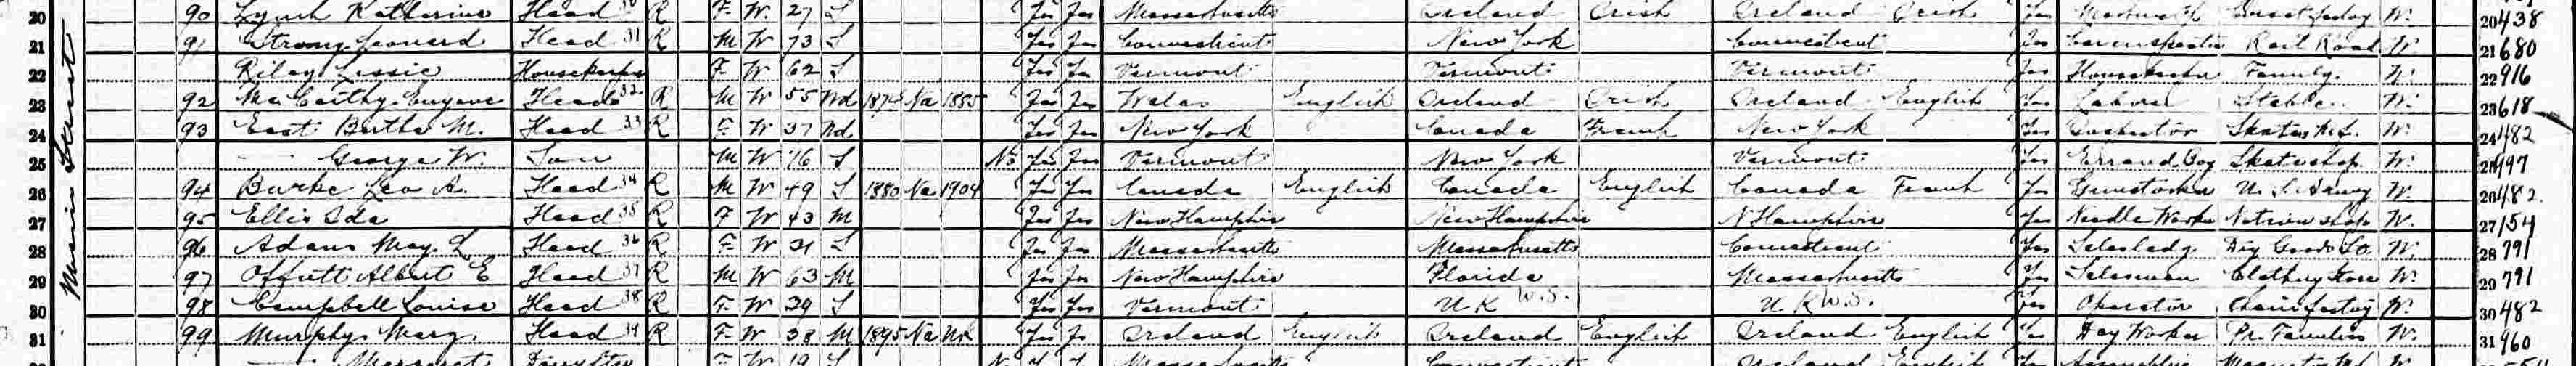 Main Street
20 90 Lynch Katherine Head 30 R F W 27 S Yes Yes Massachusetts Ireland Irish Ireland Irish Yes W 20 438
21 91 Strong Leonard Head 31 R M W 73 S Yes Yes Connecticut New York Connecticut Yes Rail Road W 21 680
22 Riley Lissie Housekeeper F W 62 S Yes Yes Vermont Vermont Vermont Yes Housekeeper Family W 22 916
23 92 Mc Carthy Eugene Head 32 R M W 55 Wd 1874 Na 1885 Yes Yes Wales English Ireland Irish Ireland English Yes Laborer Stable W 23 618
24 93 East Bertha M. Head 33 R F W 37 Wd Yes Yes New York Canada French New York Yes W 24 482
25 — George W. Son M W 16 S No Yes Yes Vermont New York Vermont Yes Errand Boy Skate shop W 25 497
26 94 Burke Leo A. Head 34 R M W 49 S 1880 Na 1904 Yes Yes Canada English Canada English Canada French Yes U. S. Armory W 26 482
27 95 Ellis Ida Head 35 R F W 43 M Yes Yes New Hampshire New Hampshire N Hampshire Yes Needle Worker Notion shop W. 27 154
28 96 Adams May. L Head 36 R F W 31 S Yes Yes Massachusetts Massachusetts Connecticut Yes Saleslady Dry Goods St. W. 28 791
29 97 Offutt Albert E Head 37 R M W 63 M Yes Yes New Hampshire Florida Massachusetts Yes Salesman Clothing Store W. 29 791
30 98 Campbell Louise Head 38 R F W 39 S Yes Yes Vermont U K W.S. U K W.S. Yes Operator W. 30 482
31 99 Murphy Mary Head 39 R F W 38 M 1895 Na Un Yes Yes Ireland English Ireland English Ireland English Yes Day Worker Pr. Families W. 31 960
— Margaret Daughter F W 19 S Massachusetts Connecticut Ireland English